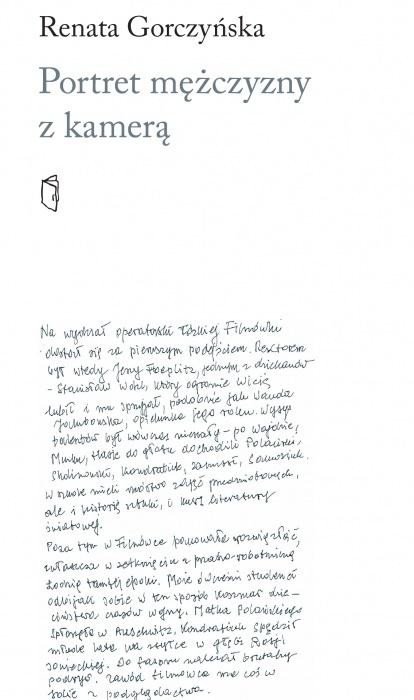 Renata Gorczyńska
Portret mężczyzny
z kamerą
Na wydział operatorski łódzkiej Filmówki
dostał się za pierwszym podejściem. Rektorem
był wtedy Jerzy Toeplitz, jednym z dziekanów
- Stanisław Wohl, który ogromnie Wicię
lubił i mu sprzyjał, podobnie jak Wanda
Jakubowska, opiekunka jego roku. Wysyp
talentów był wówczas niemały - po Wajdzie,
Munku, Hasie do głosu dochodzili Polański,
Skolimowski, Kondratiuk, Zanussi,
W szkole mieli mnóstwo zajęć przedmiotowych,
ale i historię sztuki, i kurs literatury
światowej.
Poza tym w Filmówce panowało rozwiązłość,
zwłaszcza w zetknięciu z prasno-robotniczą
Łodzią tamtej epoki. Może ówcześni studenci
odbijali sobie w ten sposób koszmar dzie-
ciństwa czasów wojny. Matka Polańskiego
spłonęła w Auschwitz, Kondratiuk spędził
młode lata na zsyłce w głębi Rosji
sowieckiej. Do tarcia materiał brutalny
podryw. Zawód filmowca ma coś w
sobie z podglądactwa.